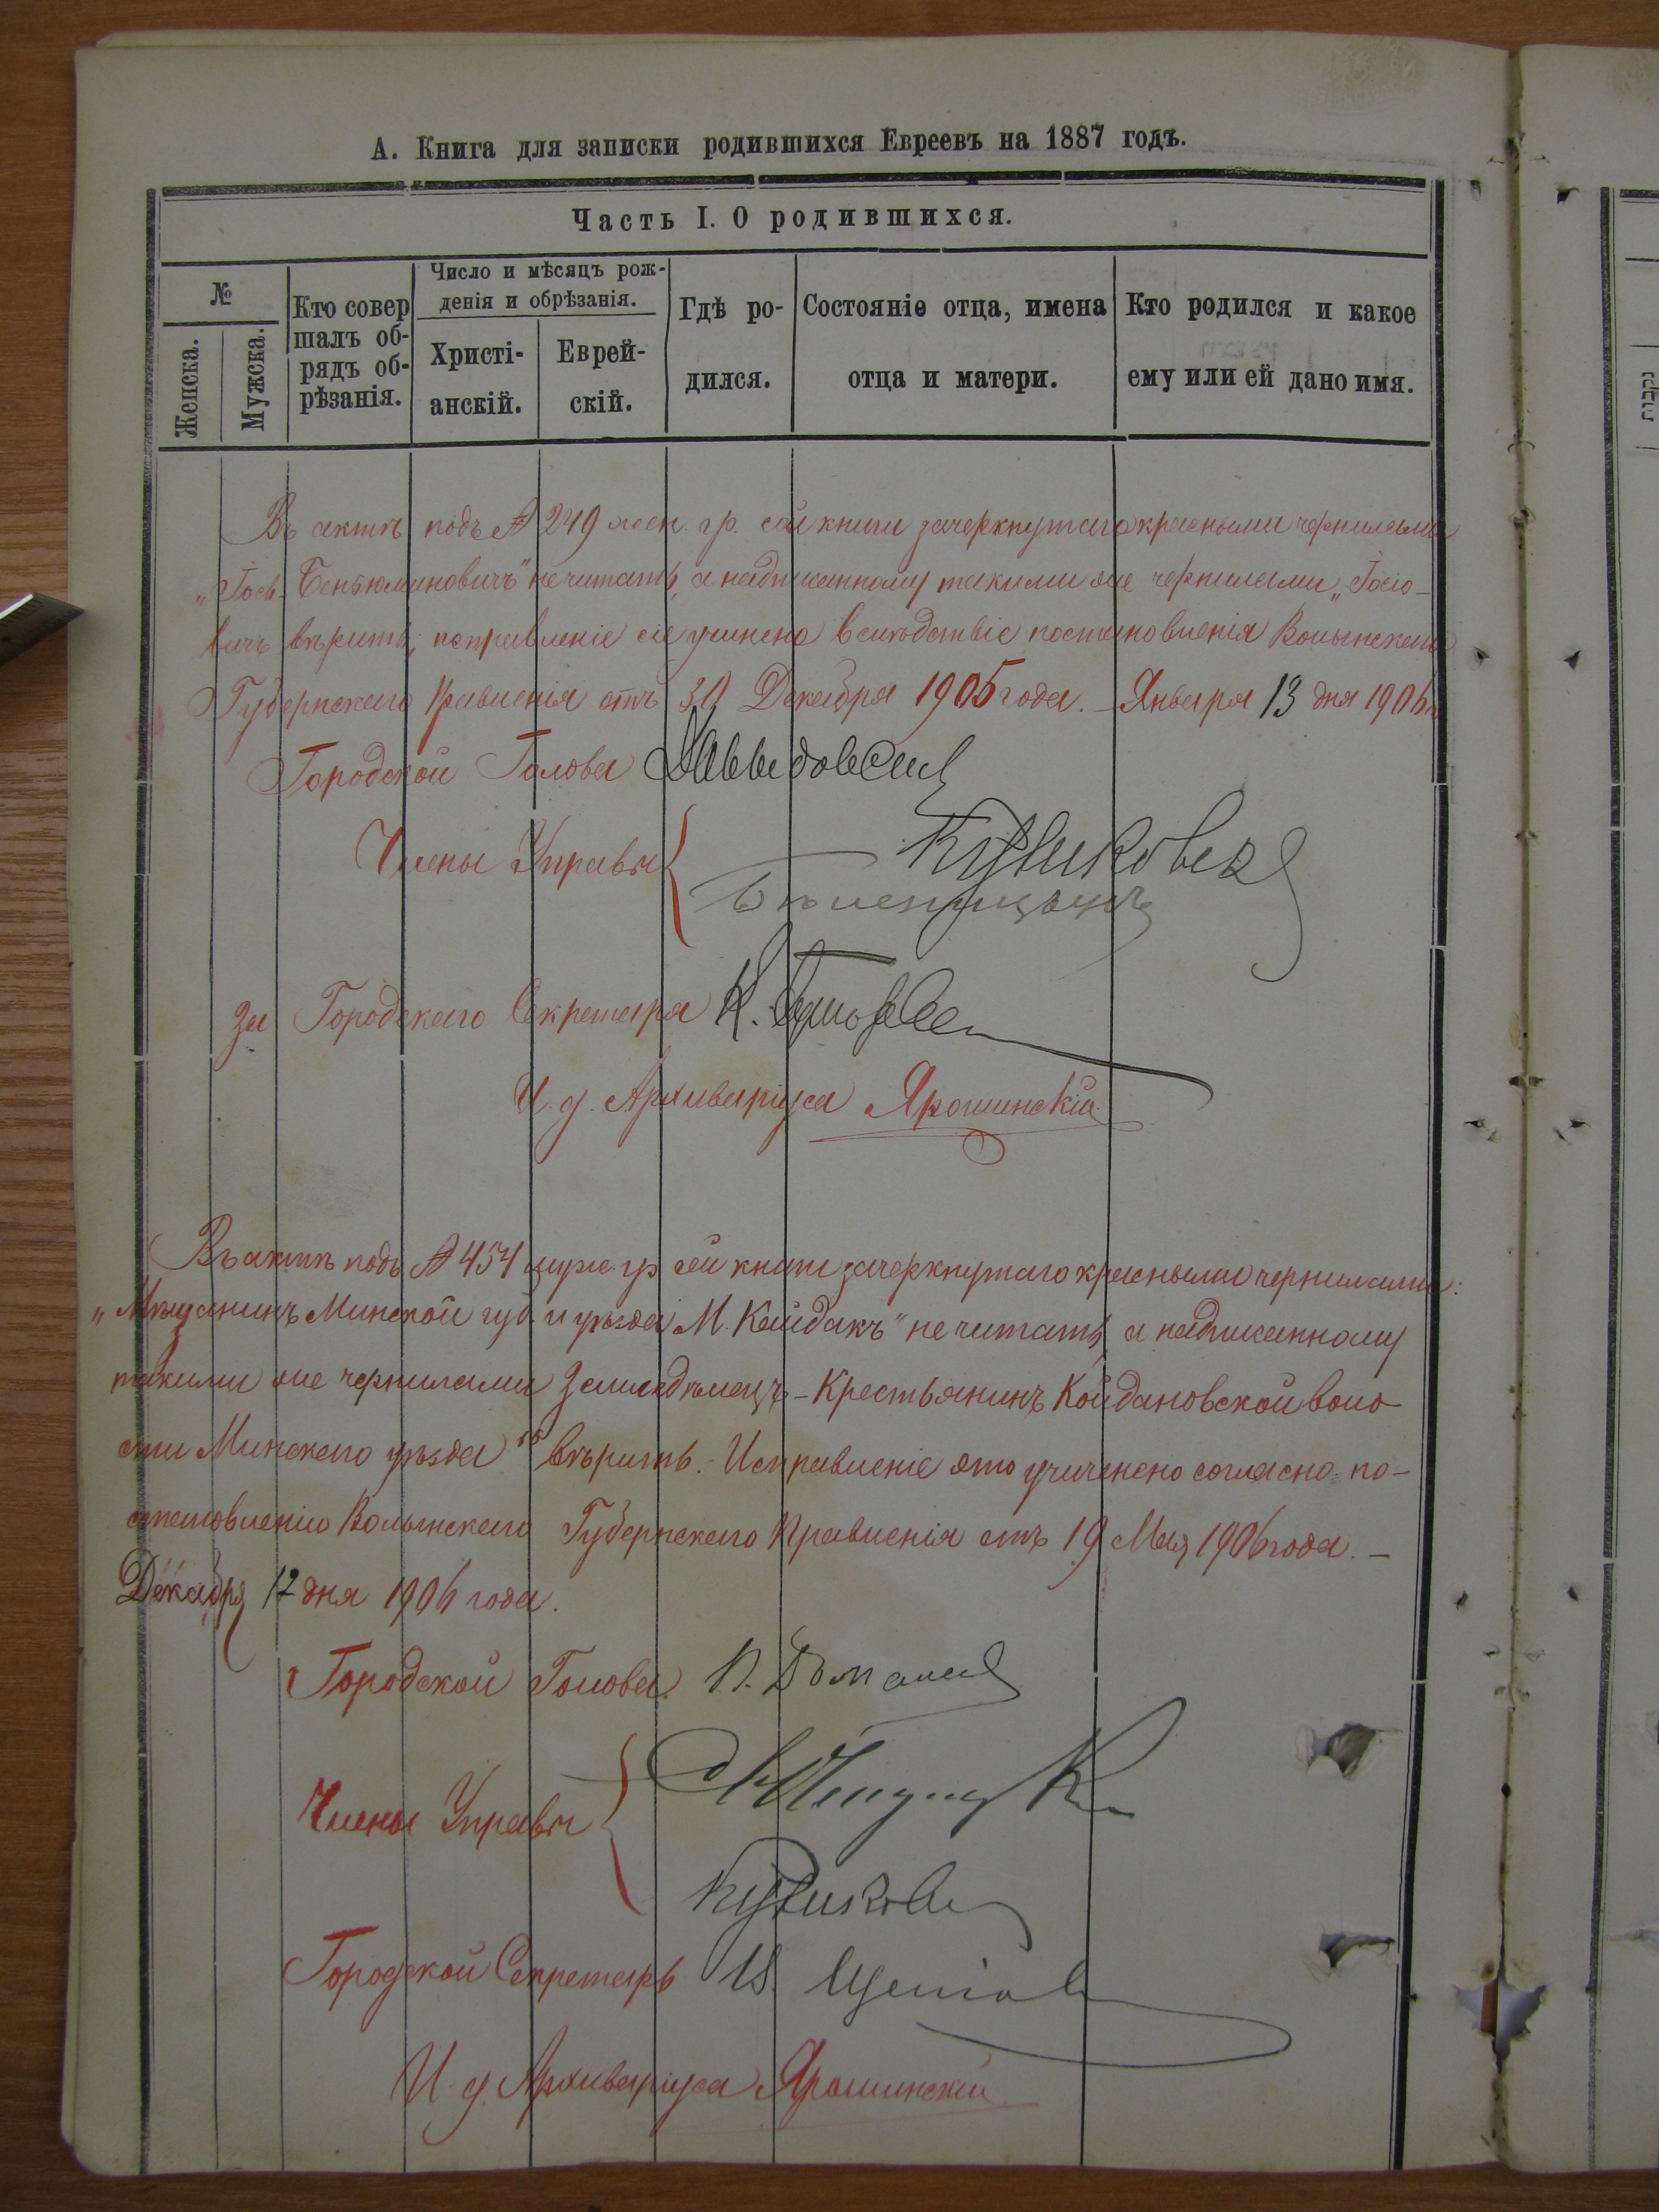 А. Книга для записки родившихся Евреевъ на 1887 годъ.
Часть I. О родившихся.
№
Женска.
Мужска.
Кто совер
шалъ об-
рядъ об-
рѣзанія.
Число и мѣсяцъ рож-
денія и обрѣзанія.
Христі-
анскій.
Еврей-
скій.
Гдѣ ро-
дился.
Состояніе отца, имена
отца и матери.
Кто родился и какое
ему или ей дано имя.
Въ актѣ подъ № 249 жен. гр. сей книги зачеркнутаго красными чернилами
„Іось-Беньюминовичъ" не читать, а надписанному такими же чернилами „Іосіо-
вичъ вѣрить; исправленіе сіе учинено вслѣдствіе постановленія Волынскаго
Губернскаго Правленія отъ 30 Декабря 1905 года. – Января 13 дня 1906 г.
Городской Голова
Члены Управы
За Городскаго Секретаря
И. д. Архиваріуса Ярошинскій
Въ актѣ подъ № 454 муж. гр. сей книги зачеркнутаго красными чернилами:
„Мѣщанинъ Минской губ. и уѣзда М. Койдакъ" не читать, а надписанному
такими же чернилами Земледѣлецъ – Крестьянинъ Койдановской воло-
сти Минскаго уѣзда" вѣрить. Исправленіе это учинено согласно по-
становленію Волынскаго Губернскаго Правленія отъ 19 Мая 1906 года. –
Декабря 12 дня 1906 года.
Городской Голова
Члены Управы
Городской Секретарь
И. д. Архиваріуса Ярошинскій